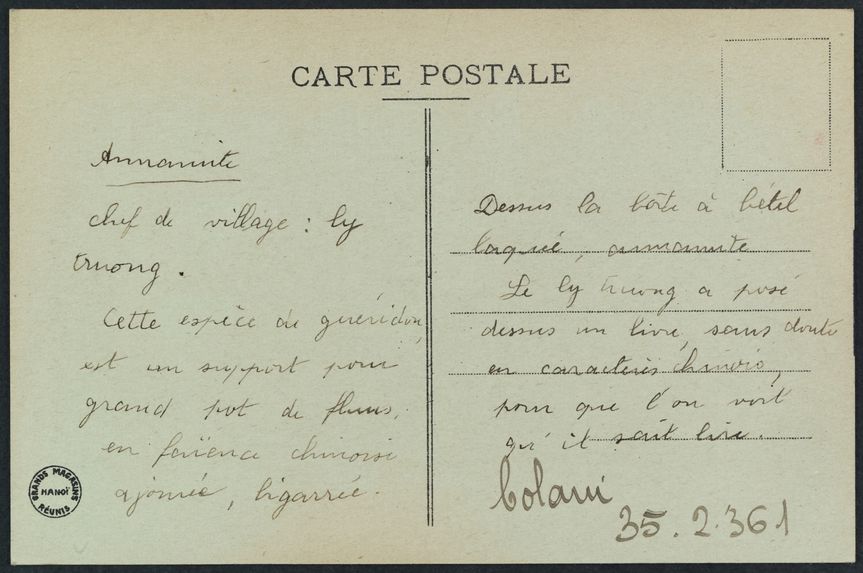 CARTE POSTALE
Annamite
chef de village : ly
truong.
Cette espèce de guéridon,
est un support pour
grand pot de fleurs,
en faïence chinoise
ajourée, bigarrée.
GRANDS MAGASINS
HANOÏ
RÉUNIS
Dessus la boîte à bétel
laquée, annamite
Le ly truong a posé
dessus un livre, sans doute
en caractères chinois,
pour que l'on voit
qu'il sait lire.
Colani
35.2.361